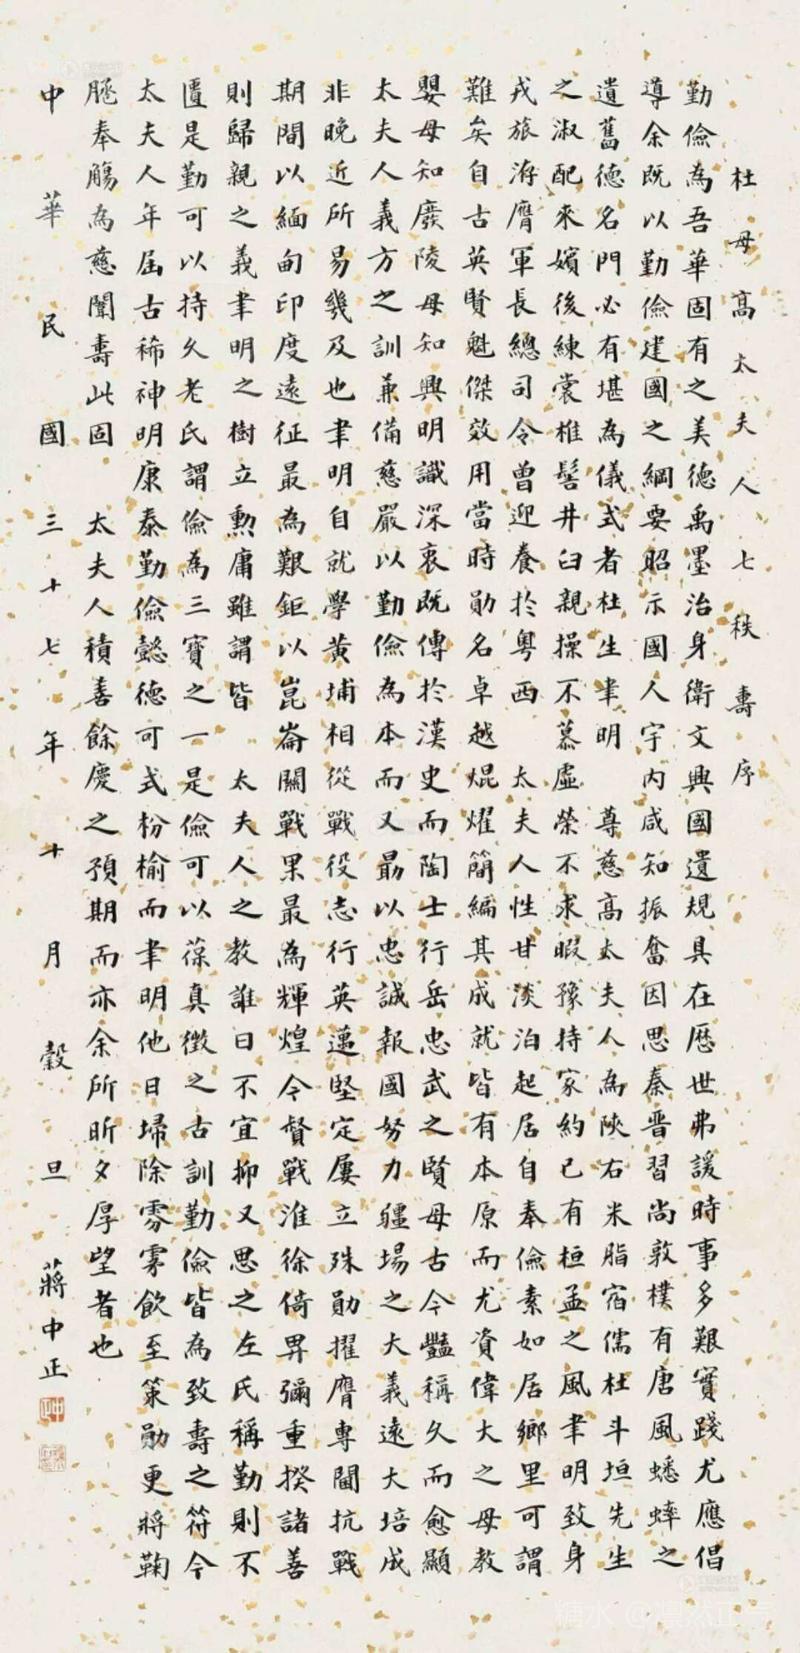 杜母高太夫人七秩壽序
勤儉為吾華固有之美德禹墨治身衛文興國遺規具在歷世弗諼時事多艱實踐尤應倡
導余既以勤儉建國之綱要昭示國人宇內咸知振奮因思秦晉習尚敦樸有唐風蟋蟀之
遺舊德名門必有堪為儀式者杜生聿明 尊慈高太夫人為陝右米脂宿儒杜斗垣先生
之淑配來嬪後練裳椎髻井臼親操不慕虛榮不求暇豫持家約己有桓孟之風聿明致身
戎旅洊膺軍長總司令曾迎養於粵西 太夫人性甘淡泊起居自奉儉素如居鄉里可謂
難矣自古英賢魁傑效用當時勛名卓越焜耀簡編其成就皆有本原而尤資偉大之母教
嬰母知廢陵母知興明識深衷既傳於漢史而陶士行岳忠武之賢母古今豔稱久而愈顯
太夫人義方之訓兼備慈嚴以勤儉為本而又勗以忠誠報國努力疆場之大義遠大培成
非晚近所易幾及也聿明自就學黃埔相從戰役志行英邁堅定屢立殊勛擢膺專閫抗戰
期間以緬甸印度遠征最為艱鉅以崑崙關戰果最為輝煌今督戰淮徐倚畀彌重揆諸善
則歸親之義聿明之樹立勳庸雖謂皆 太夫人之教誰曰不宜抑又思之左氏稱勤則不
匱是勤可以持久老氏謂儉為三寶之一是儉可以葆真徵之古訓勤儉皆為致壽之符今
太夫人年屆古稀神明康泰勤儉懿德可式枌榆而聿明他日埽除雰雺飲至策勛更將鞠
䠆奉觴為慈闈壽此固 太夫人積善餘慶之預期而亦余所昕夕厚望者也
中華民國三十七年十月穀旦 蔣中正
中正
糖水 @凜然正气